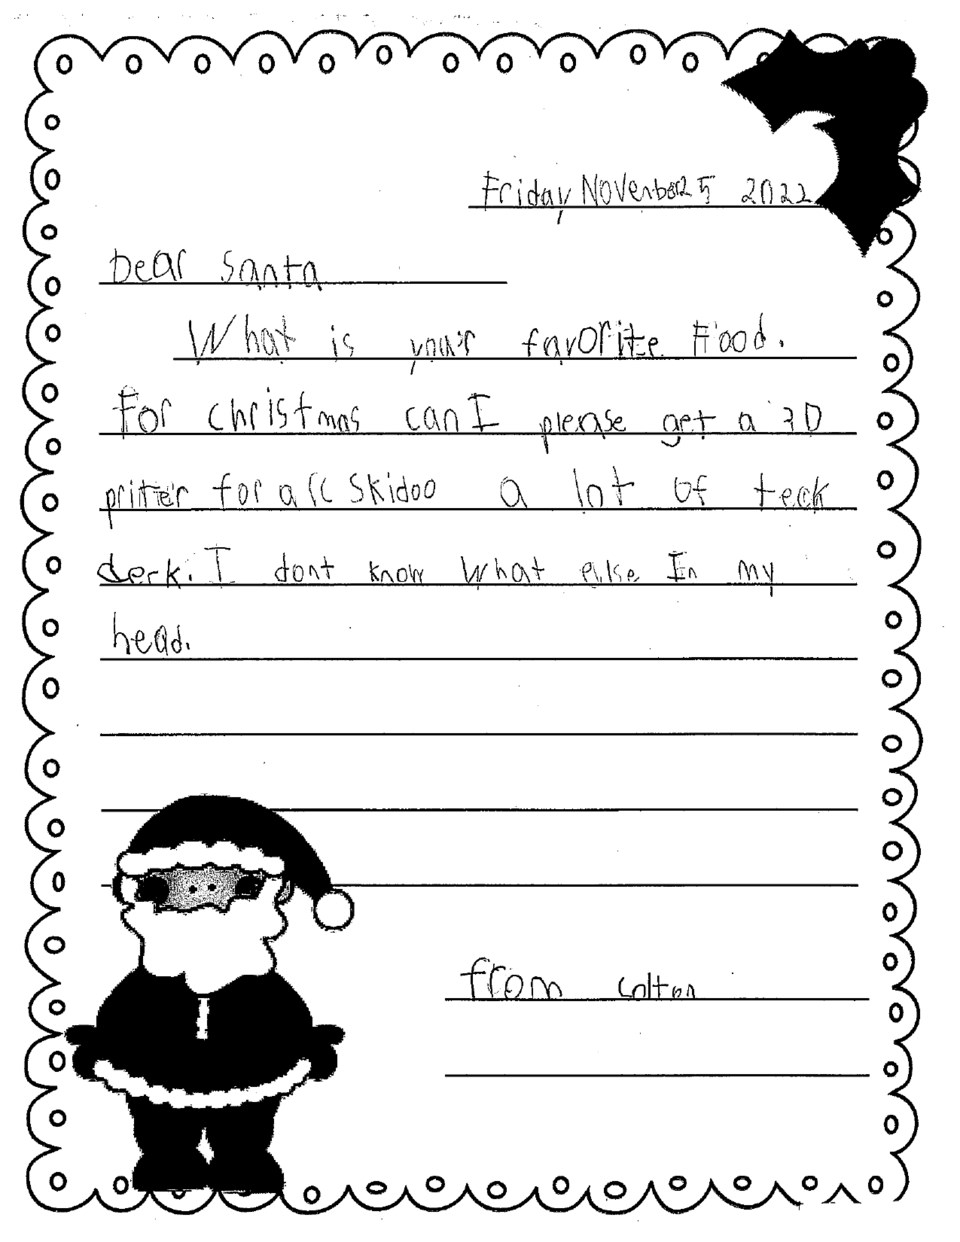 Friday November 25 2022
Dear Santa
What is your favorite Food.
For christmas can I please get a 3D
printer for a rc Skidoo a lot of teck
derk. I dont know What else In my
head.
from colton